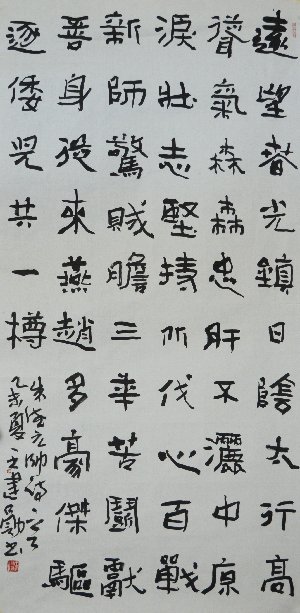 遠望春光鎮日陰太行高
聳氣森森忠肝不灑中原
淚壯志堅持北伐心百戰
新師驚賊膽三年苦鬪獻
吾身從來燕趙多豪傑驅
逐倭兒共一樽
朱德元帥詩
乙未夏 建勛書